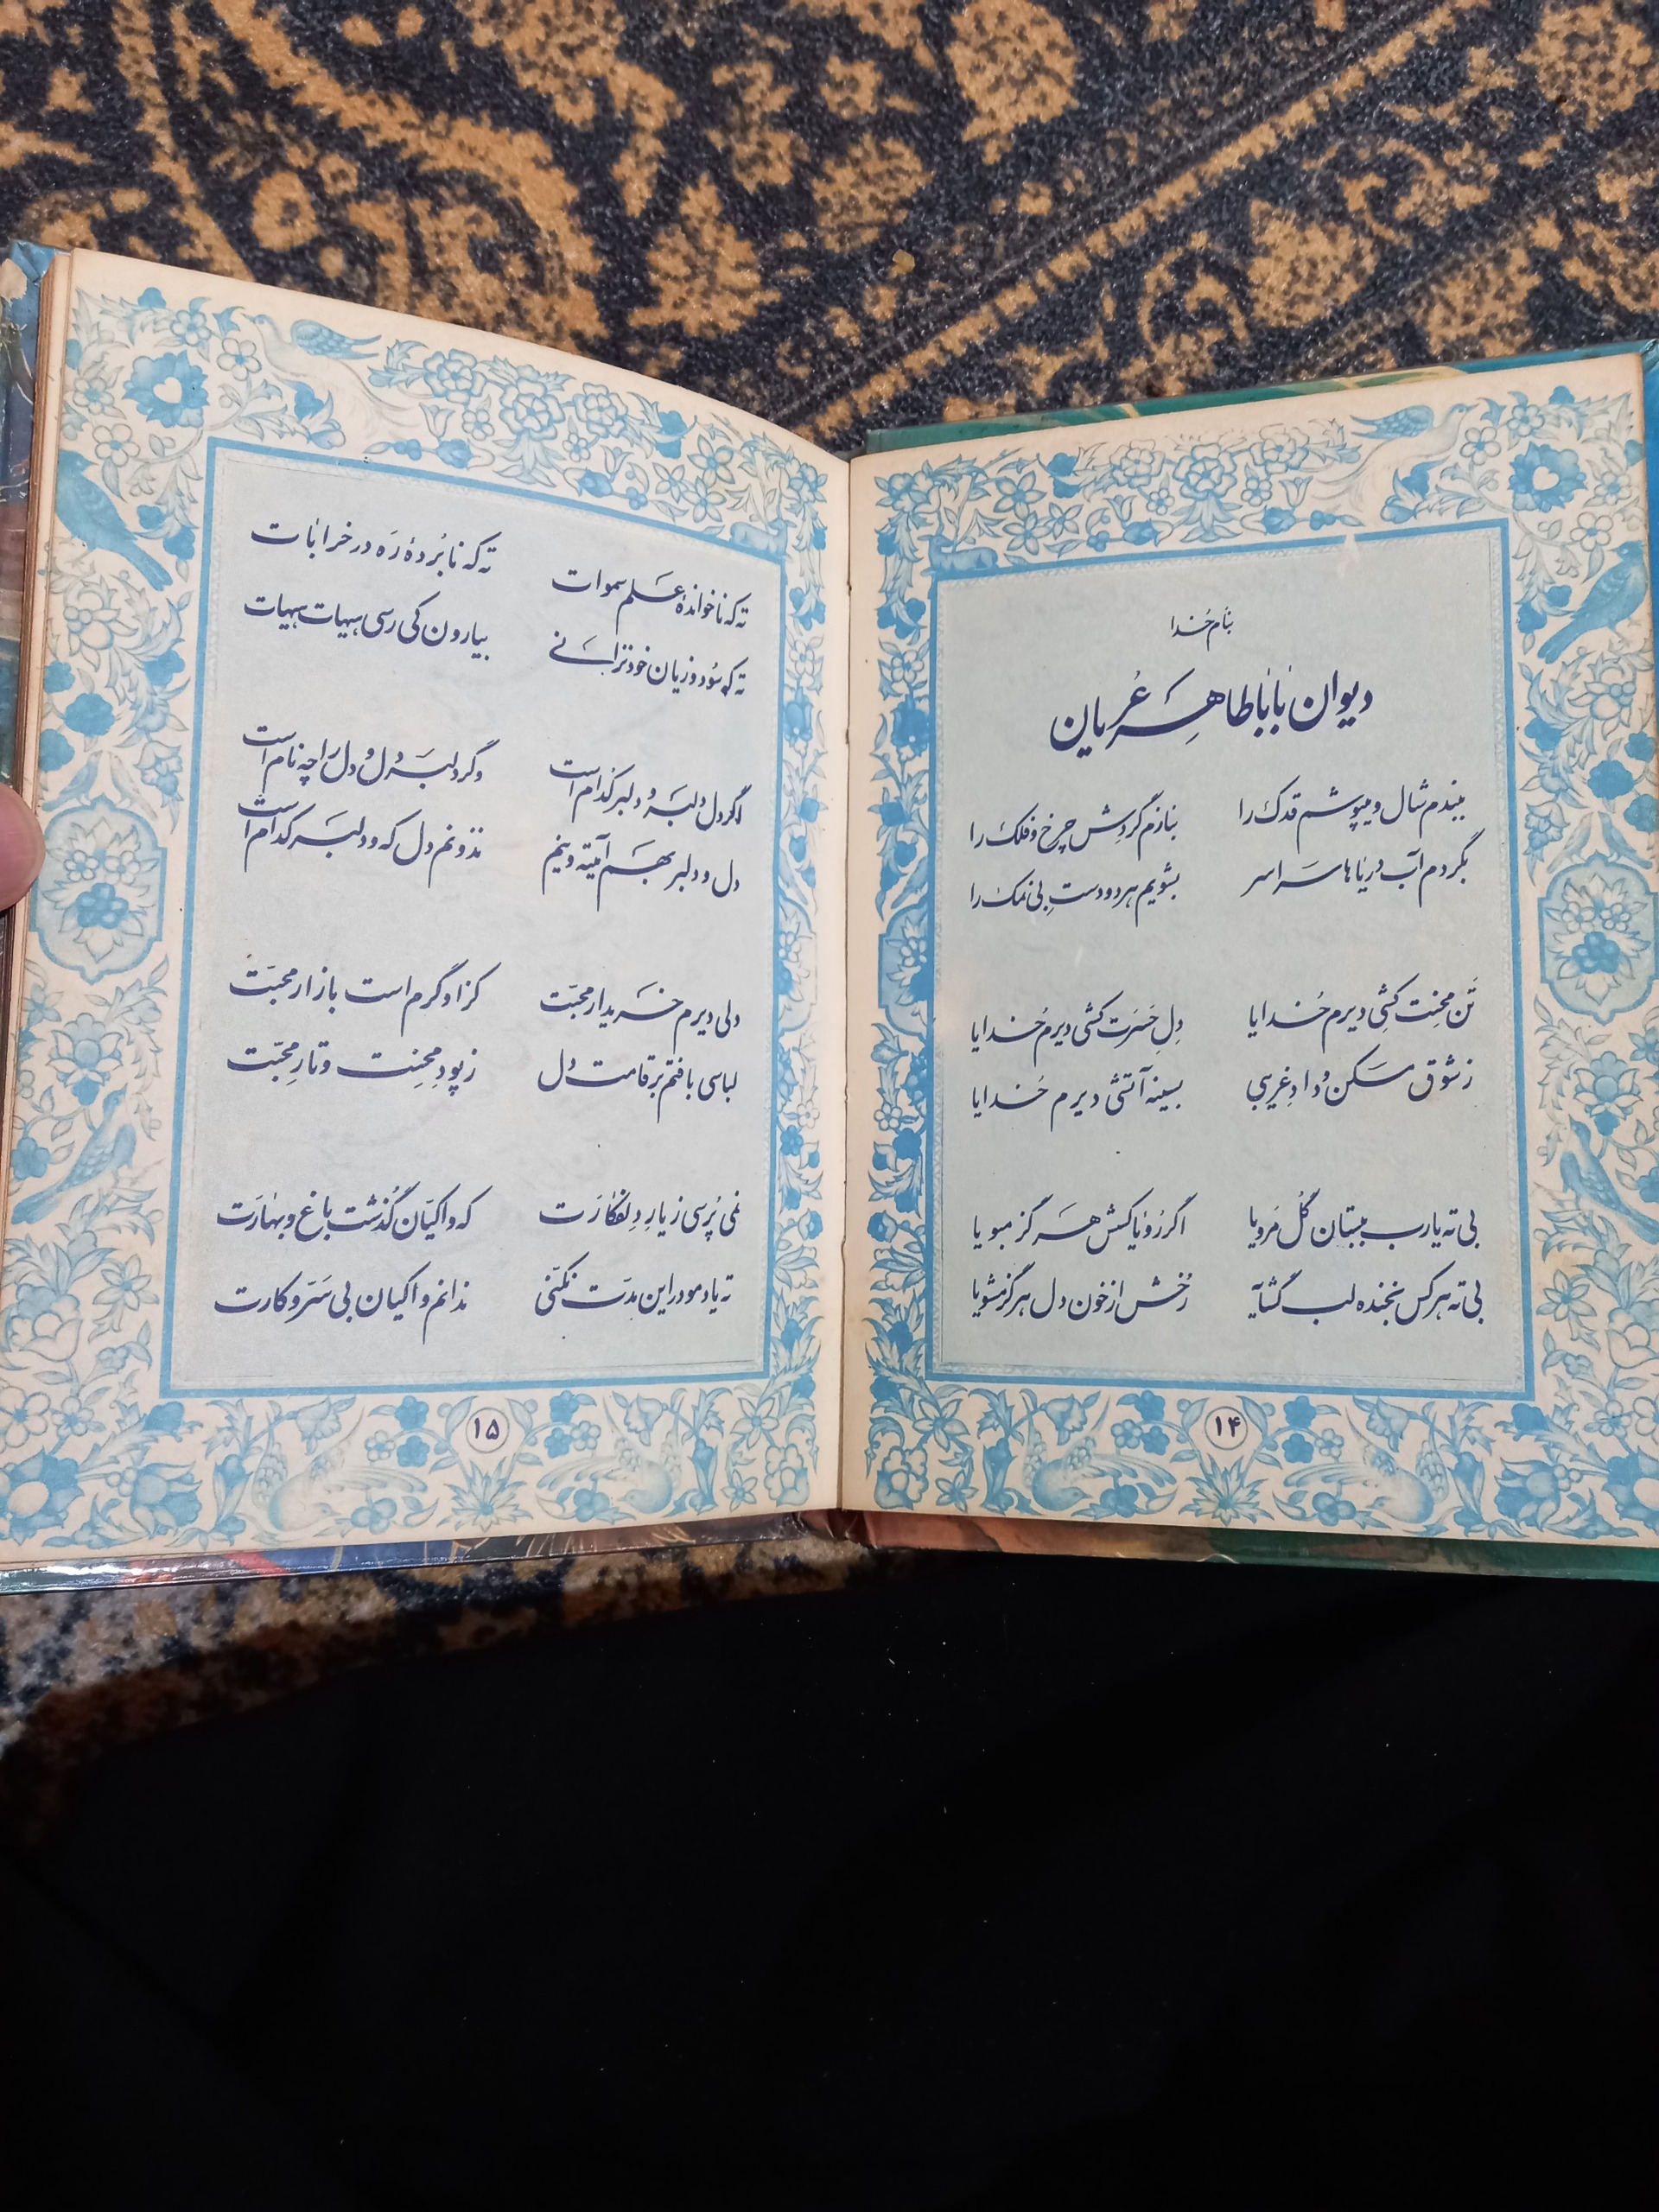 بنام خدا
دیوان باباطاهر عریان
ببندم شال و میپوشم قدک را
بنازم گردش چرخ و فلک را
بگردم آب دریاها سراسر
بشویم هر دو دست بی نمک را
تن محنت کشی دیرم خدایا
دل حسرت کشی دیرم خدایا
ز شوق مسکن و داد غریبی
بسینه آتشی دیرم خدایا
بی ته یارب ببستان گل مرویا
اگر رویا کسش هرگز مبویا
بی ته هر کس بخنده لب گشایه
رخش از خون دل هرگز مشویا
۱۴
ته که ناخوانده علم سموات
ته که نابرده ره در خرابات
ته که سود و زیان خود ندانی
بیارون کی رسی هیهات هیهات
اگر دل دلبر و دلبر کدام است
وگر دلبر دل و دل را چه نام است
دل و دلبر بهم آمیته وینم
ندونم دل که و دلبر کدام است
دلی دیرم خریدار محبت
کز او گرم است بازار محبت
لباسی بافتم بر قامت دل
ز پود محنت و تار محبت
نمی پرسی ز یار دلفکارت
که واکیان گذشت باغ و بهارت
ته یاد مو در این مدت نکنی
ندانم واکیان بی سر و کارت
۱۵